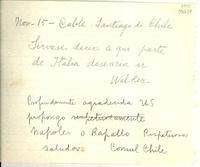 Nov. 15 - Cable. Santiago de Chile
Sírvase decir a que parte
de Italia desearía ir
Walker
Profundamente agradecida US
propongo respetuosamente
Napoles o Rapallo Respetuosos
saludos Consul Chile